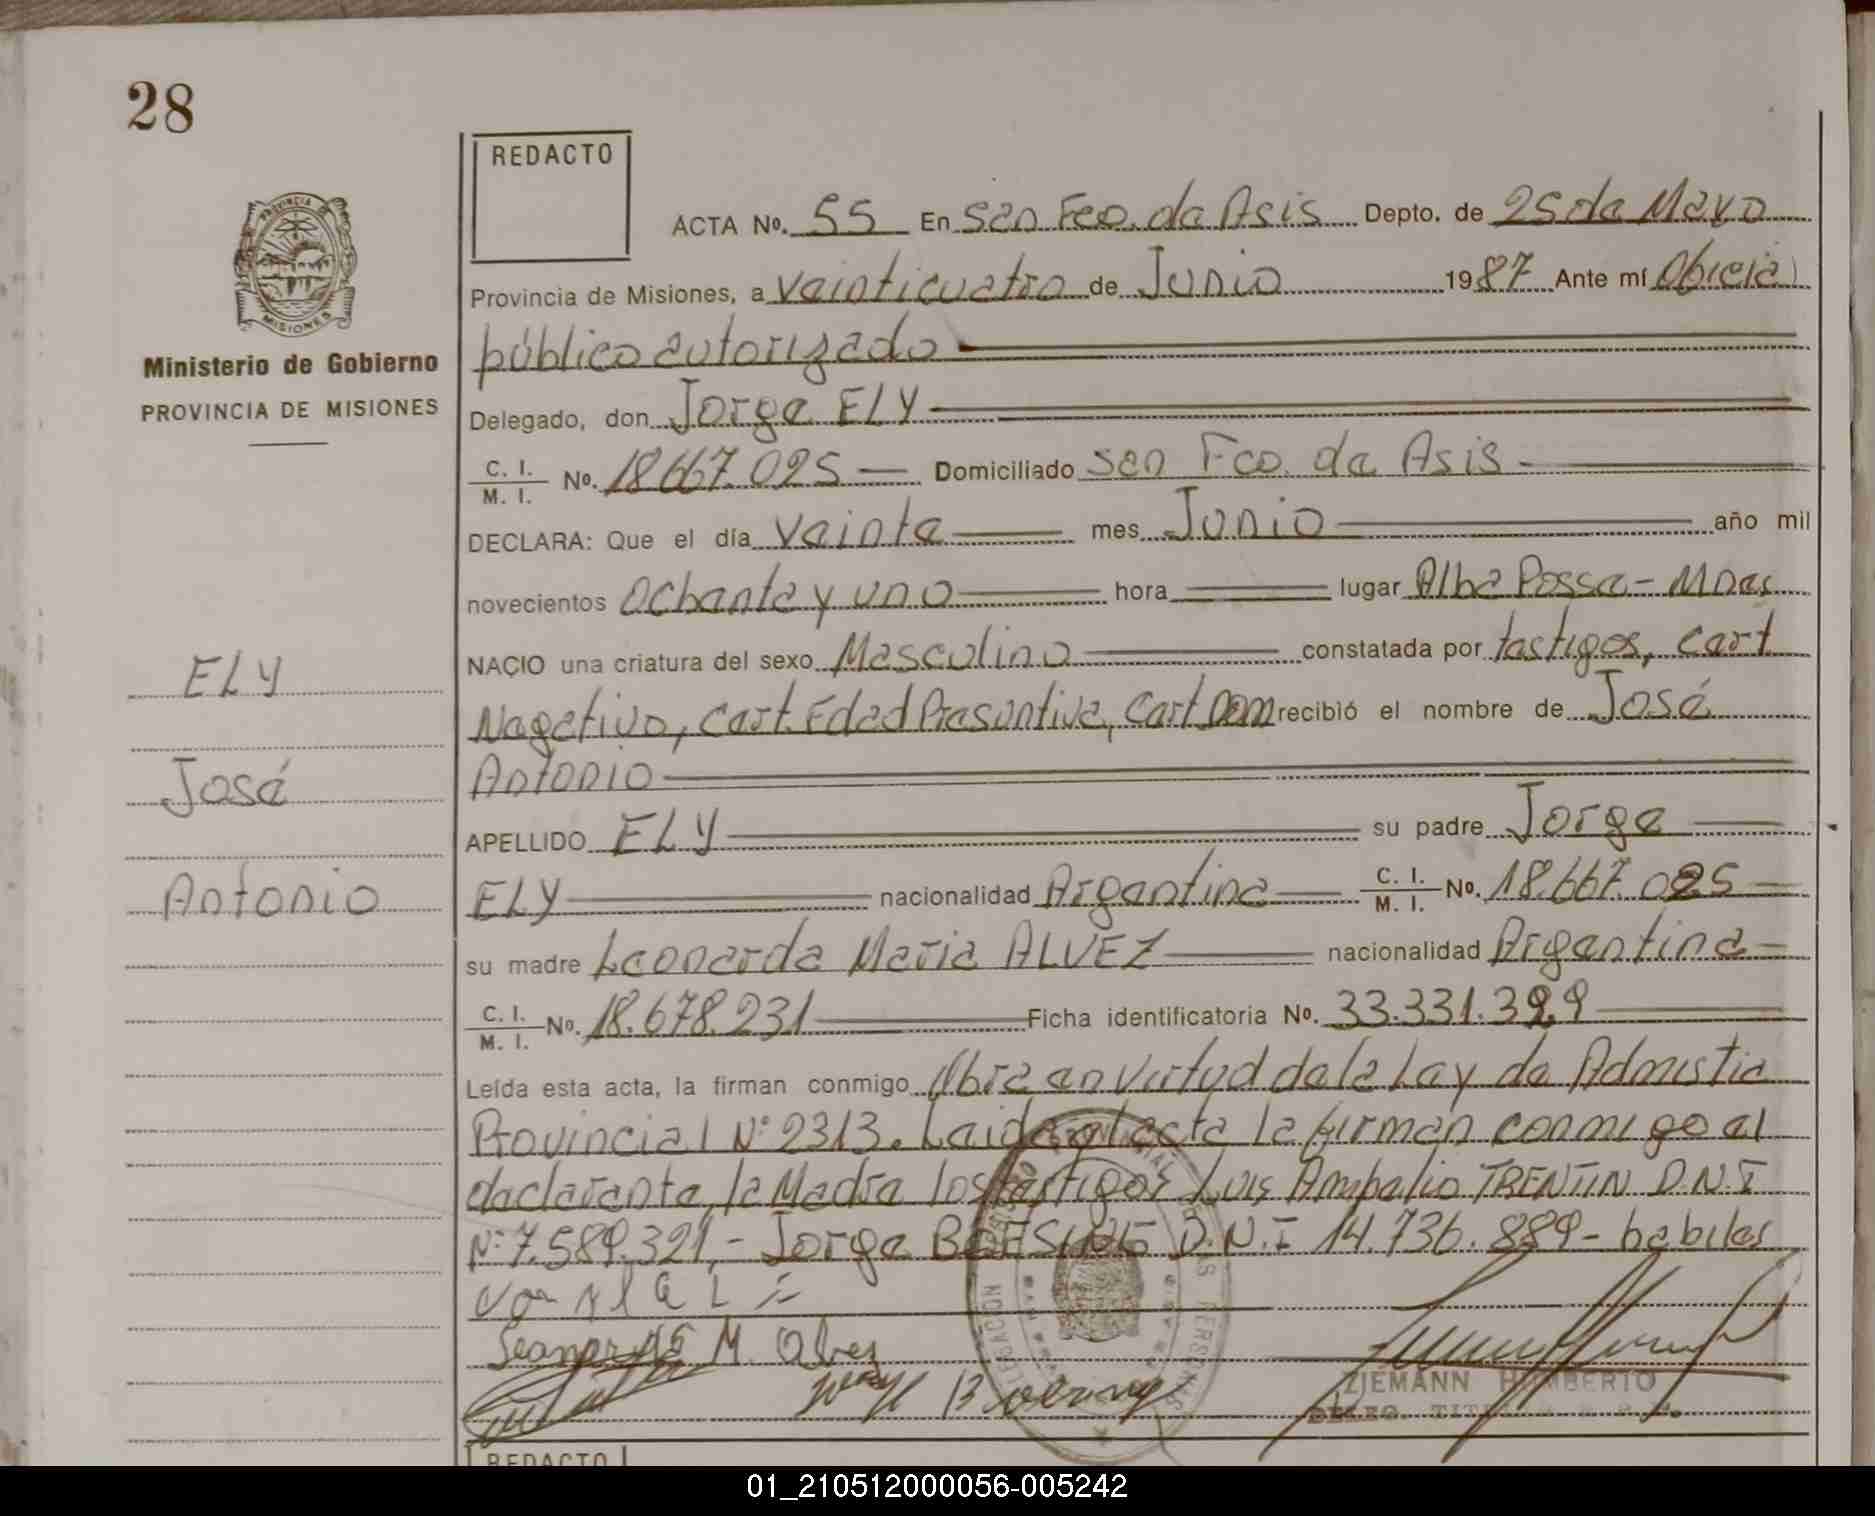 28
REDACTO
ACTA No. 55 En San Fco. de Asis Depto. de 25 de Mayo
Provincia de Misiones, a veinticuatro de Junio 1987 Ante mí Oficial
público autorizado
Delegado, don Jorge ELY
C. I. / M. I. No. 18.667.025 Domiciliado San Fco. de Asis
DECLARA: Que el día veinte mes Junio año mil
novecientos Ochenta y uno hora lugar Alba Posse - Mnes
NACIO una criatura del sexo Masculino constatada por testigos, Cert
Negativo, Cert. Edad Presuntiva, Cert Dom recibió el nombre de José
Antonio
APELLIDO ELY su padre Jorge
ELY nacionalidad Argentina C. I. / M. I. No. 18.667.025
su madre Leonarda Maria ALVEZ nacionalidad Argentina
C. I. / M. I. No. 18.678.231 Ficha identificatoria No. 33.331.399
Leída esta acta, la firman conmigo Abre en virtud de la Ley de Admistia
Provincial Nº 2313. Leida el acta la firman conmigo el
declarante, la Madre los testigos Luis Ampelio TRENTIN D.N.I
Nº 7.589.321, - Jorge D.N.I 14.736.889 - habiles
M. Alvez
ZIEMANN HUMBERTO
DELEG. TITULAR
Ministerio de Gobierno
PROVINCIA DE MISIONES
ELY
José
Antonio
PROVINCIA DE
MISIONES
DELEGACION
PERSONAS
REDACTO
01_210512000056-005242